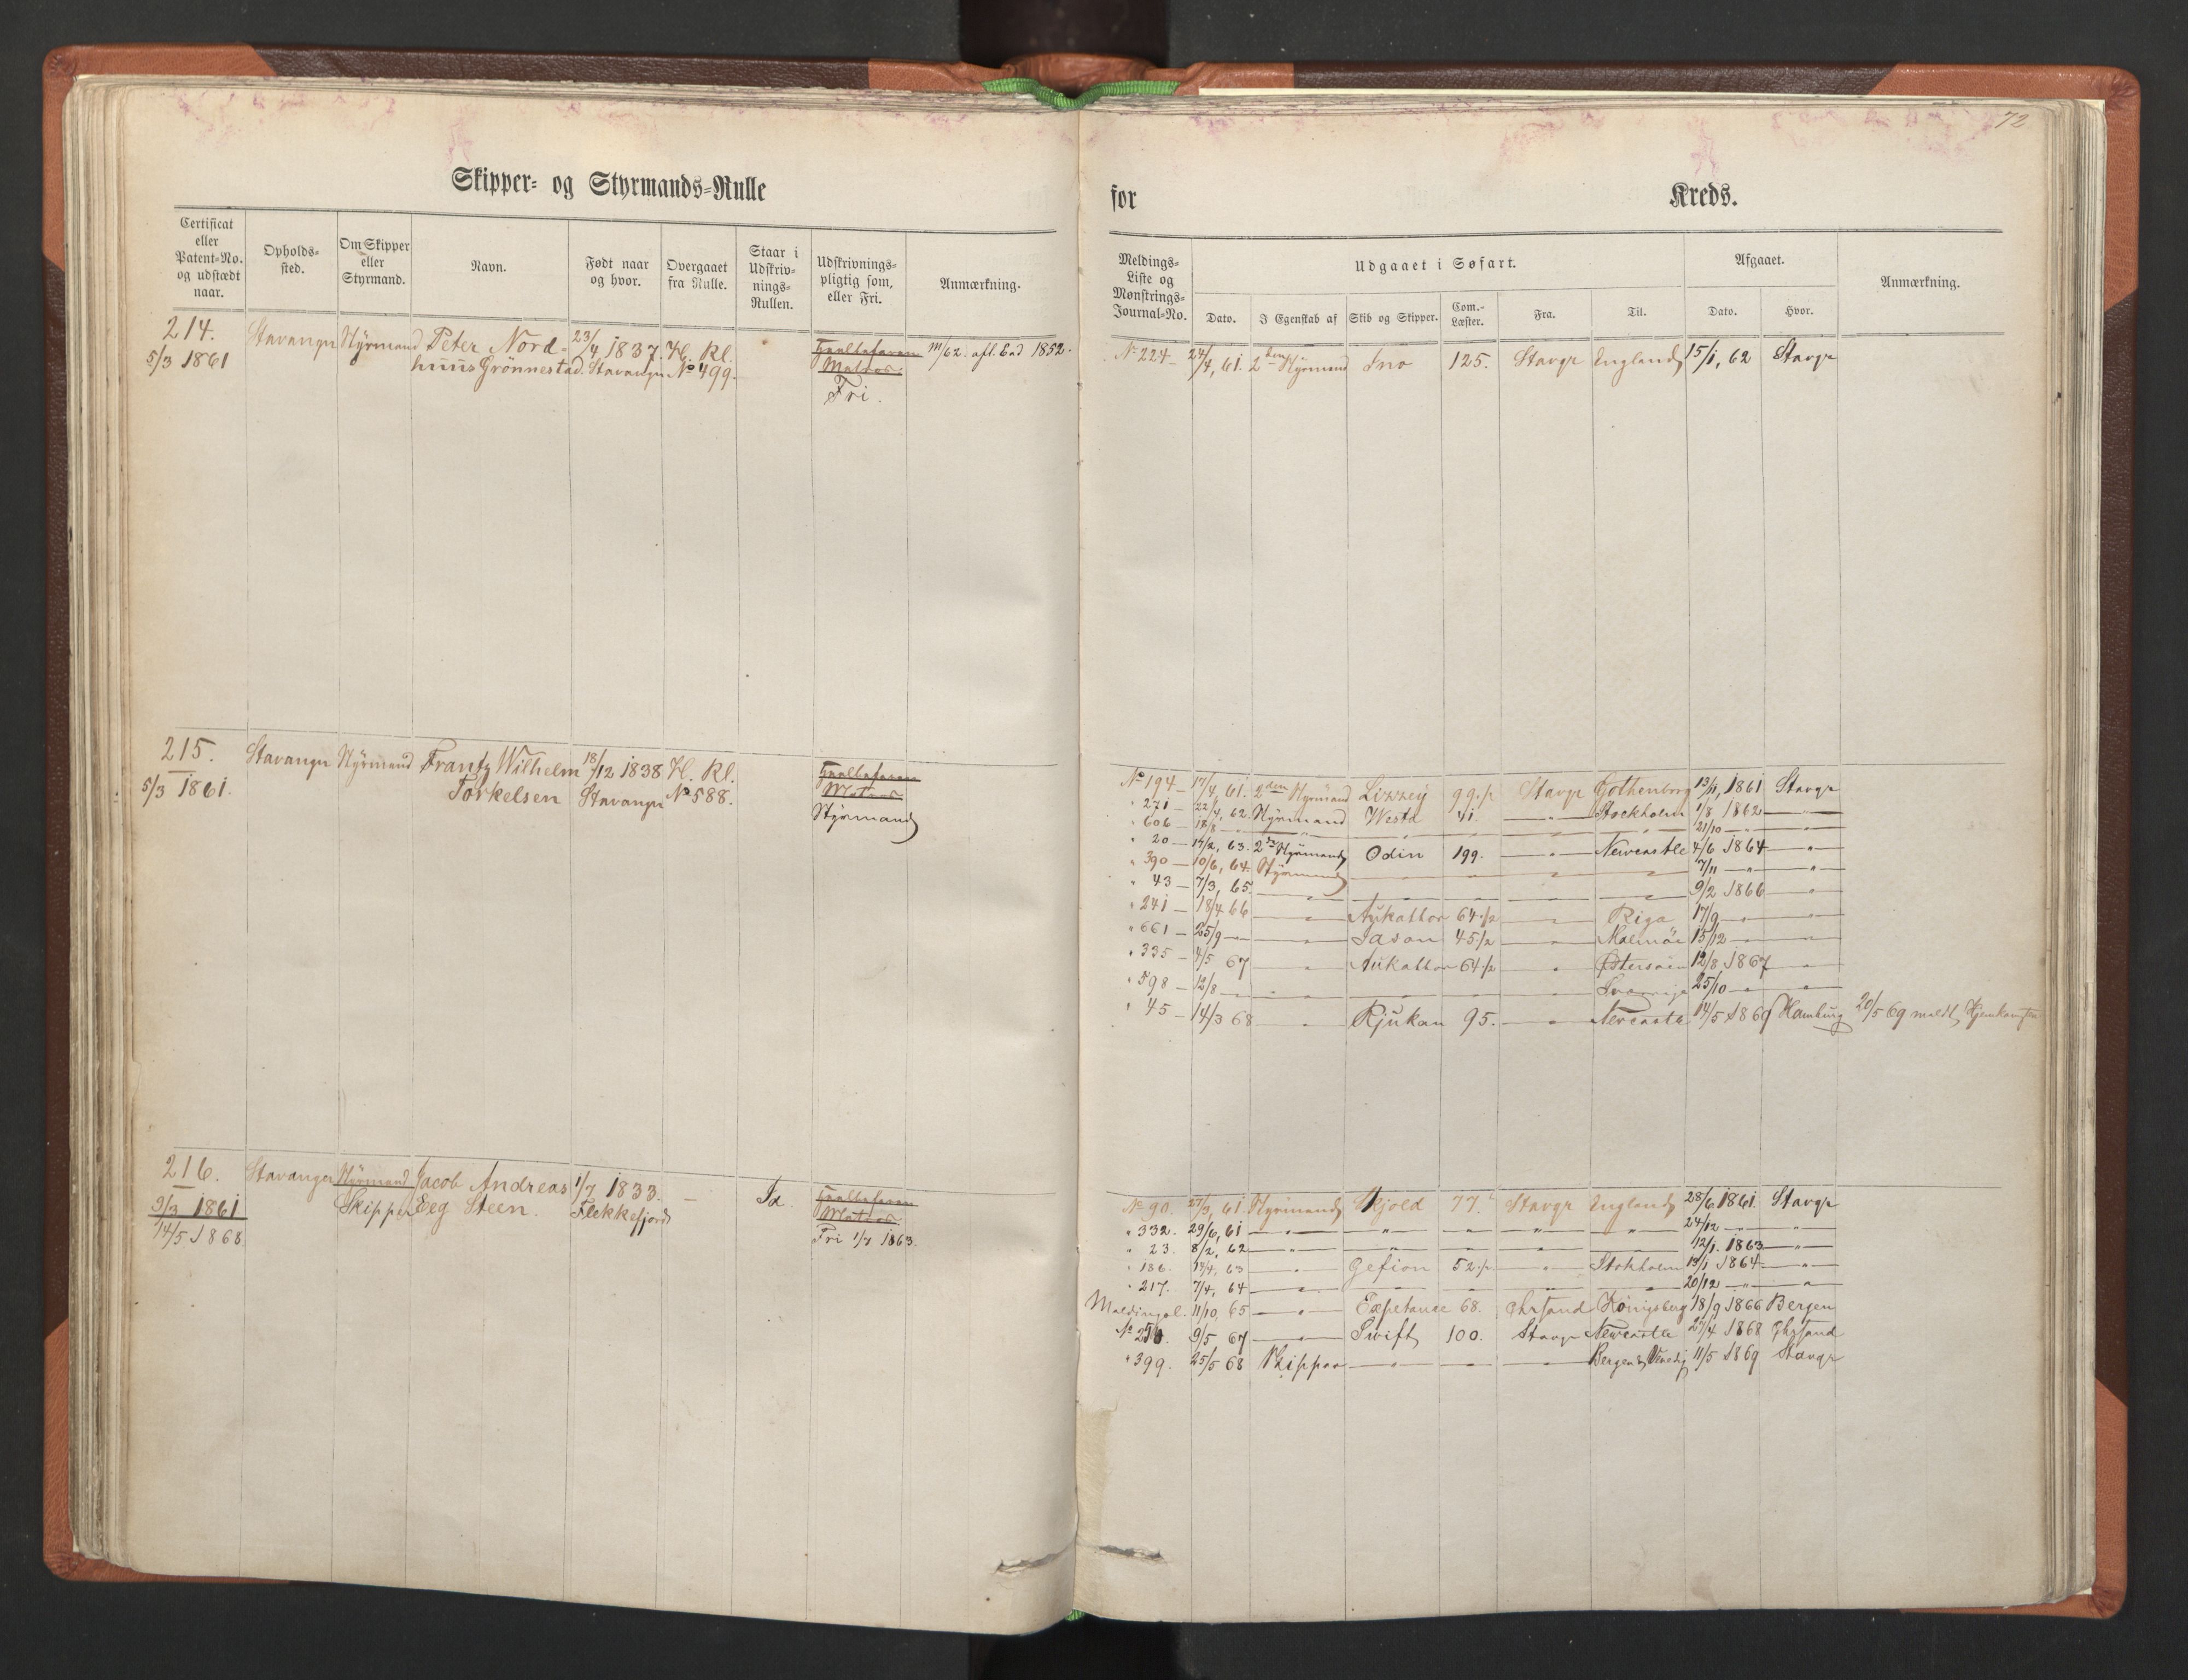 72
Skipper- og Styrmands-Rulle
for Kreds.
Certificat eller Patent-No. og udstædt naar.
Opholds-sted.
Om Skipper eller Styrmand.
Navn.
Født naar og hvor.
Overgaaet fra Rulle.
Staar i Udskriv-nings-Rullen.
Udskrivnings-pligtig som, eller Fri.
Anmærkning.
Meldings-Liste og Mønstrings-Journal-No.
Udgaaet i Søfart.
Dato.
I Egenskab af
Skib og Skipper.
Com.-Læster.
Fra.
Til.
Afgaaet.
Dato.
Hvor.
Anmærkning.
214. Stavanger Styrmand Peter Nord- 23/4 1837. H. Rl. /62. aft. Ead 1852.
5/3 1861 huus Grönnestad. Stavanger No 499. Matros
Fri.
No 224 - 24/4, 61. 2den Styrmand Ino 125. Stavgr England 15/1, 62 Stavgr
215. Stavanger Styrmand Frantz Wilhelm 18/12 1838 H. Rl.
5/3 1861. Torkelsen Stavanger No 588. Matros
Styrmand
No 194 - 17/4, 61. 2den Styrmand Lizzey 99 1/2 Stavgr Gothenborg 13/11, 1861 Stavgr
" 271 - 22/4, 62. Styrmand Westa 41. — " — Stockholm 1/8 1862 — " —
" 606 - 18/8 — " — " — " — " — " — " — 21/10 — " — " —
" 20 - 14/2, 63. 2den Styrmand Odin 199. — " — Newcastle 4/6 1864 — " —
" 390 - 10/6, 64. Styrmand — " — " — " — " — 7/11 — " — " —
" 43 - 7/3, 65. — " — " — " — " — " — 9/2 1866 — " —
" 241 - 18/4 66 — " — Aukathor 64 1/2 — " — Riga 17/9 — " — " —
" 661 - 25/9 — " — Jason 45 1/2 — " — Malmöe 15/12 — " — " —
" 335 - 4/5 67 — " — Aukathor 64 1/2 — " — Østersøen 12/8 1867 — " —
" 598 - 12/8 — " — " — " — " — Sverrige 25/10 — " — " —
" 45 - 14/3 68 — " — Rjukan 95. — " — Newcastle 14/5 1869 Hamburg 20/5 69 meldt Hjemkomsten
216. Stavanger Styrmand Jacob Andreas 1/7 1833. — Ja
9/3 1861 Skipper Eeg Steen. Flekkefjord Matros
14/5 1868. Fri 1/7 1863.
No 90. 27/3, 61. Styrmand Skjold 77. Stavgr England 28/6 1861. Stavgr
" 332. 29/6, 61 — " — " — " — " — " — 24/12 — " — " —
" 23. 8/2, 62 — " — " — " — " — " — 12/1. 1863 — " —
" 186. 13/4, 63 — " — Gefion 52 1/2. — " — Stokholm 13/1 1864 — " —
" 217. 7/4, 64 — " — " — " — " — " — 20/12 — " — " —
11/10, 65 — " — Expetance 68. Chrsand Königsberg 18/9 1866 Bergen
No 256. 9/5 67 — " — Swift 100. Stavgr Newcastle 27/4 1868 Chrsand
" 399. 25/5 68 Skipper — " — " — " — Bergen & Venedig 11/5 1869 Stavgr